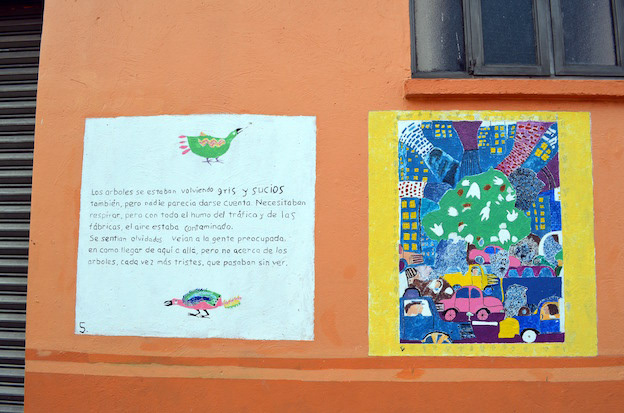 Los arboles se estaban volviendo gris y sucios
también, pero nadie parecia darse cuenta. Necesitaban
respirar, pero con todo el humo del tráfico y de las
fábricas, el aire estaba contaminado.
Se sentian olvidados. veian a la gente preocupada.
en como llegar de aquí a allá, pero no acerco de los
arboles, cada vez más tristes, que pasaban sin ver.
5.